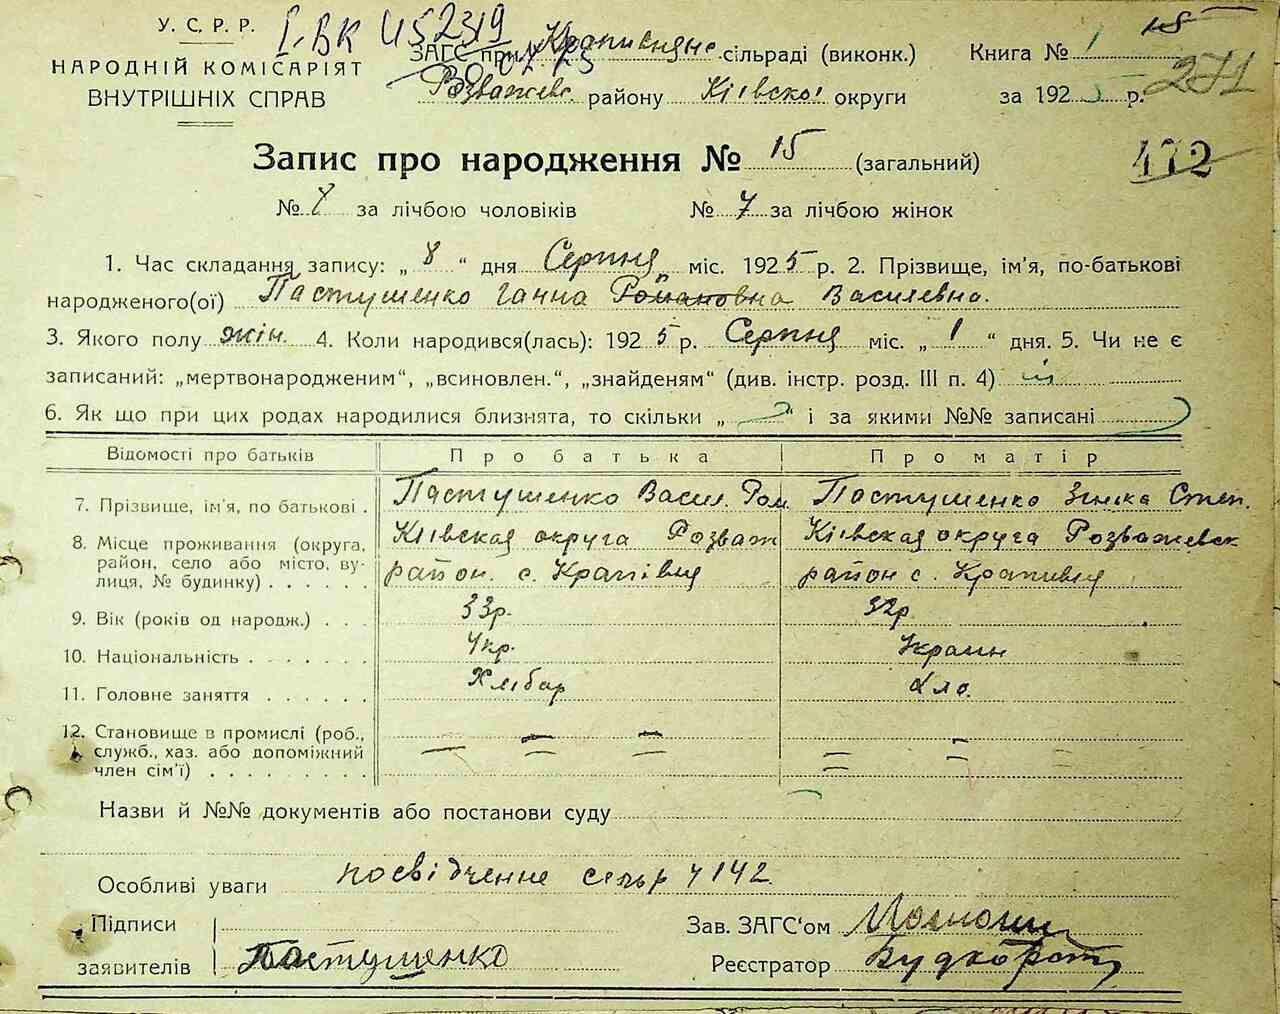 У. С. Р. Р.
НАРОДНІЙ КОМІСАРІЯТ
ВНУТРІШНІХ СПРАВ
І-ВК 452319
ЗАГС при сільраді (виконк.)
Розважевс. району Київской округи
Книга № 1
за 1925 р.
15
271
Запис про народження № 15 (загальний)
472
№ 8 за лічбою чоловіків № 7 за лічбою жінок
1. Час складання запису: „ 8 “ дня Серпня міс. 1925 р. 2. Прізвище, ім'я, по-батькові
народженого(ої) Пастушенко Ганна Романовна Василевна.
3. Якого полу жін. 4. Коли народився(лась): 1925 р. Серпня міс. „ 1 “ дня. 5. Чи не є
записаний: „мертвонародженим“, „всиновлен.“, „знайденям“ (див. інстр. розд. III п. 4) ні
6. Як що при цих родах народилися близнята, то скільки „ “ і за якими №№ записані
Відомості про батьків Про батька Про матір
7. Прізвище, ім'я, по батькові . Пастушенко Васил. Ром. Пастушенко Зінька Степ.
8. Місце проживання (округа, Київская округа Розваж Київская округа Розважевск
район, село або місто, ву-
лиця, № будинку) . . . . . район. с. Крапівня район с. Крапивня
9. Вік (років од народж.) . . . 33р. 32р.
10. Національність . . . . . . . Укр. Украин
11. Головне заняття . . . . . . Хлібар хлб.
12. Становище в промислі (роб.,
служб., хаз. або допоміжний
член сім'ї) . . . . . . . .
Назви й №№ документів або постанови суду
Особливі уваги посвідченне сельр 4142
Підписи
заявителів Пастушенко
Зав. ЗАГС'ом
Реєстратор